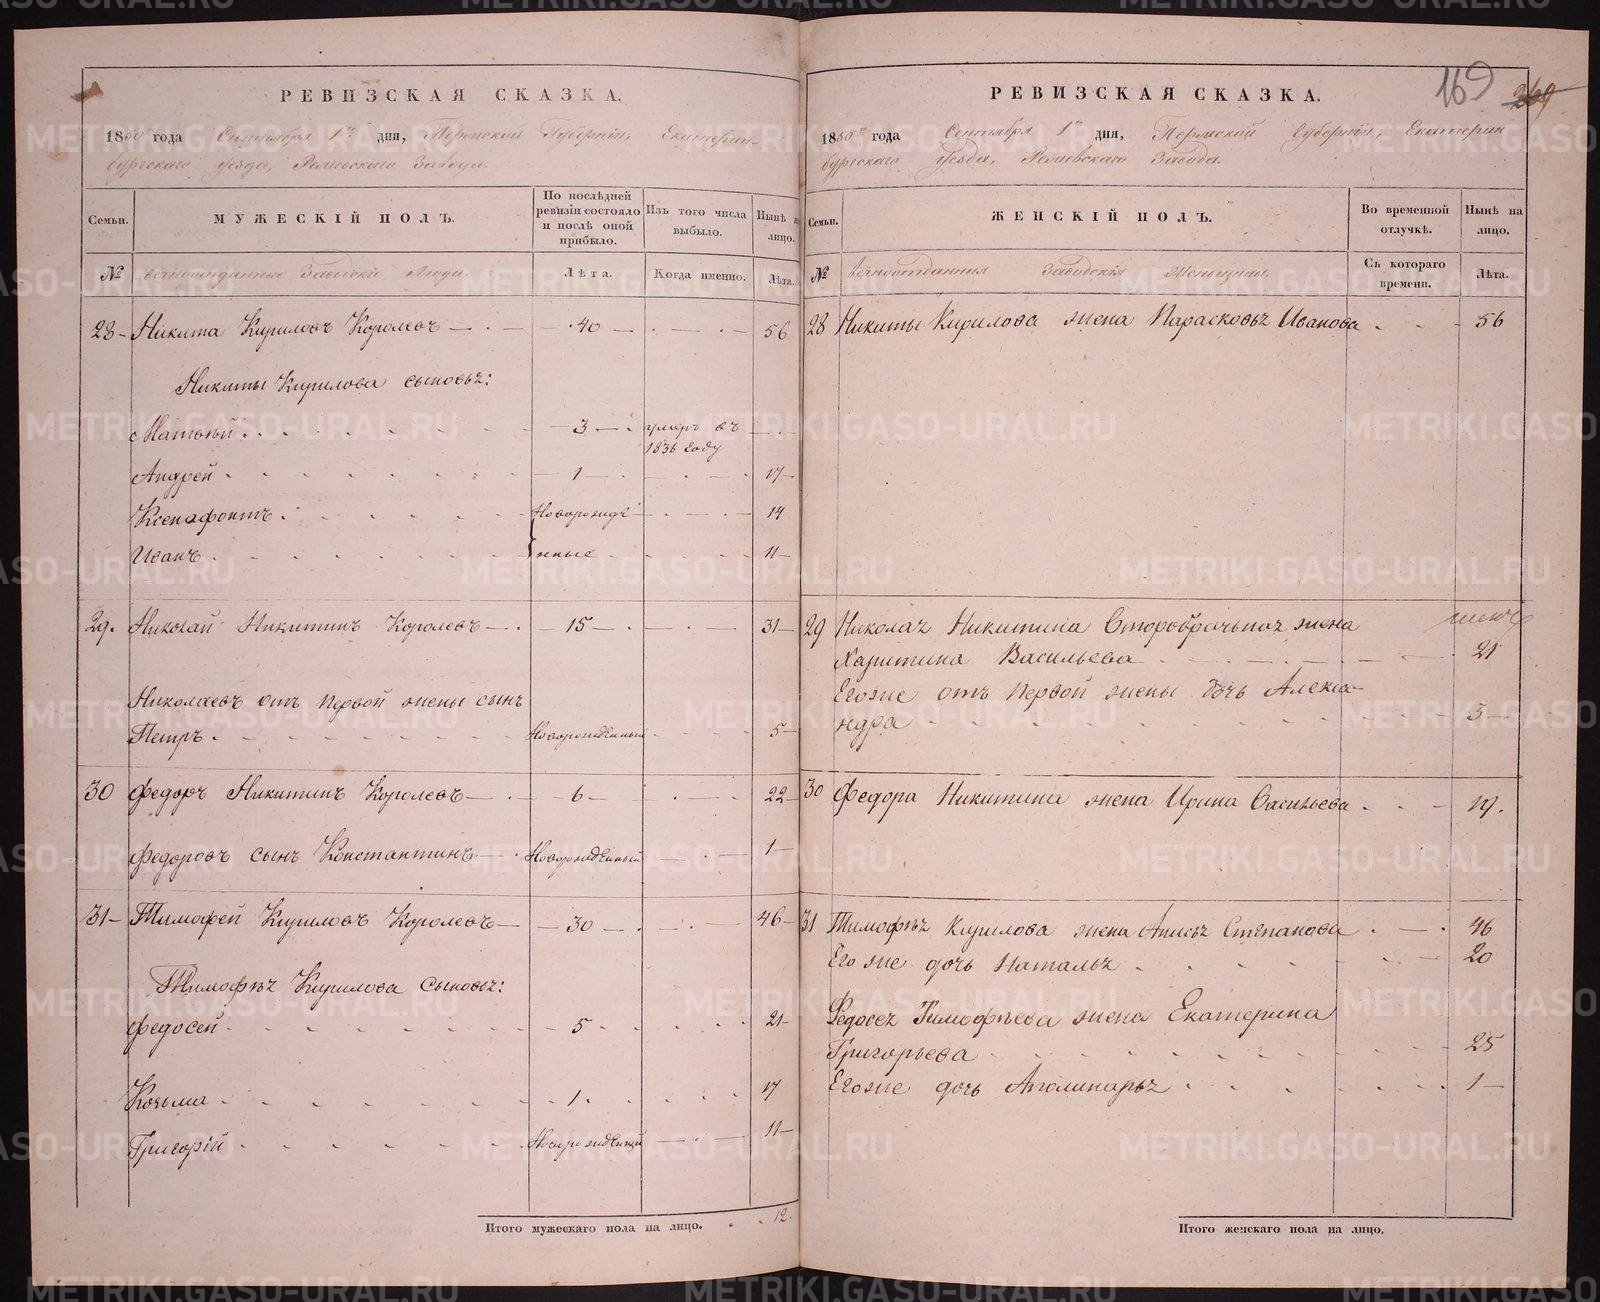 РЕВИЗСКАЯ СКАЗКА.
1850го года Сентября 1го дня, Пермской Губернии, Екатерин-
бургскаго уезда, Режевскаго Завода.
Семьи.
МУЖЕСКІЙ ПОЛЪ.
По послѣдней ревизіи состояло и послѣ оной прибыло.
Изъ того числа выбыло.
Нынѣ на лицо.
№
Заводскіе Люди.
Лѣта.
Когда именно.
Лѣта.
28 Никита Кириловъ Королевъ 40 56
Никиты Кирилова сыновья:
Матвѣй 3 умеръ въ
1836 году
Андрей 1 17
Ксенафонтъ Новорожде 14
Иванъ нные 11
29. Николай Никитинъ Королевъ 15 31
Николаевъ отъ первой жены сынъ
Петръ Новорожденный 5
30 Федоръ Никитинъ Королевъ 6 22
Федоровъ сынъ Константинъ Новорожденный 1
31 Тимофей Кириловъ Королевъ 30 46
Тимофѣя Кирилова сыновья:
Федосей 5 21
Козьма 1 17
Григорій Новорожденный 11
Итого мужескаго пола на лицо. 12.
169
РЕВИЗСКАЯ СКАЗКА.
1850го года Сентября 1го дня, Пермской Губерніи, Екатерин
бургскаго уезда, Режевскаго Завода.
Семьи.
ЖЕНСКІЙ ПОЛЪ.
Во временной отлучкѣ.
Нынѣ на лицо.
№
Заводскія Женщины.
Съ котораго времени.
Лѣта.
28 Никиты Кирилова жена Парасковья Иванова 56
29 Николая Никитина Второбрачьная жена
Харитина Васильева 21
Егоже отъ первой жены дочь Алекса-
ндра 5
30 Федора Никитина жена Ирина Васильева 19.
31 Тимофѣя Кирилова жена Анисья Степанова 46
Его же дочь Наталья 20
Федосея Тимофѣева жена Екатерина
Григорьева 25
Егоже дочь Аполинарья 1
Итого женскаго пола на лицо.
METRIKI.GASO-URAL.RU